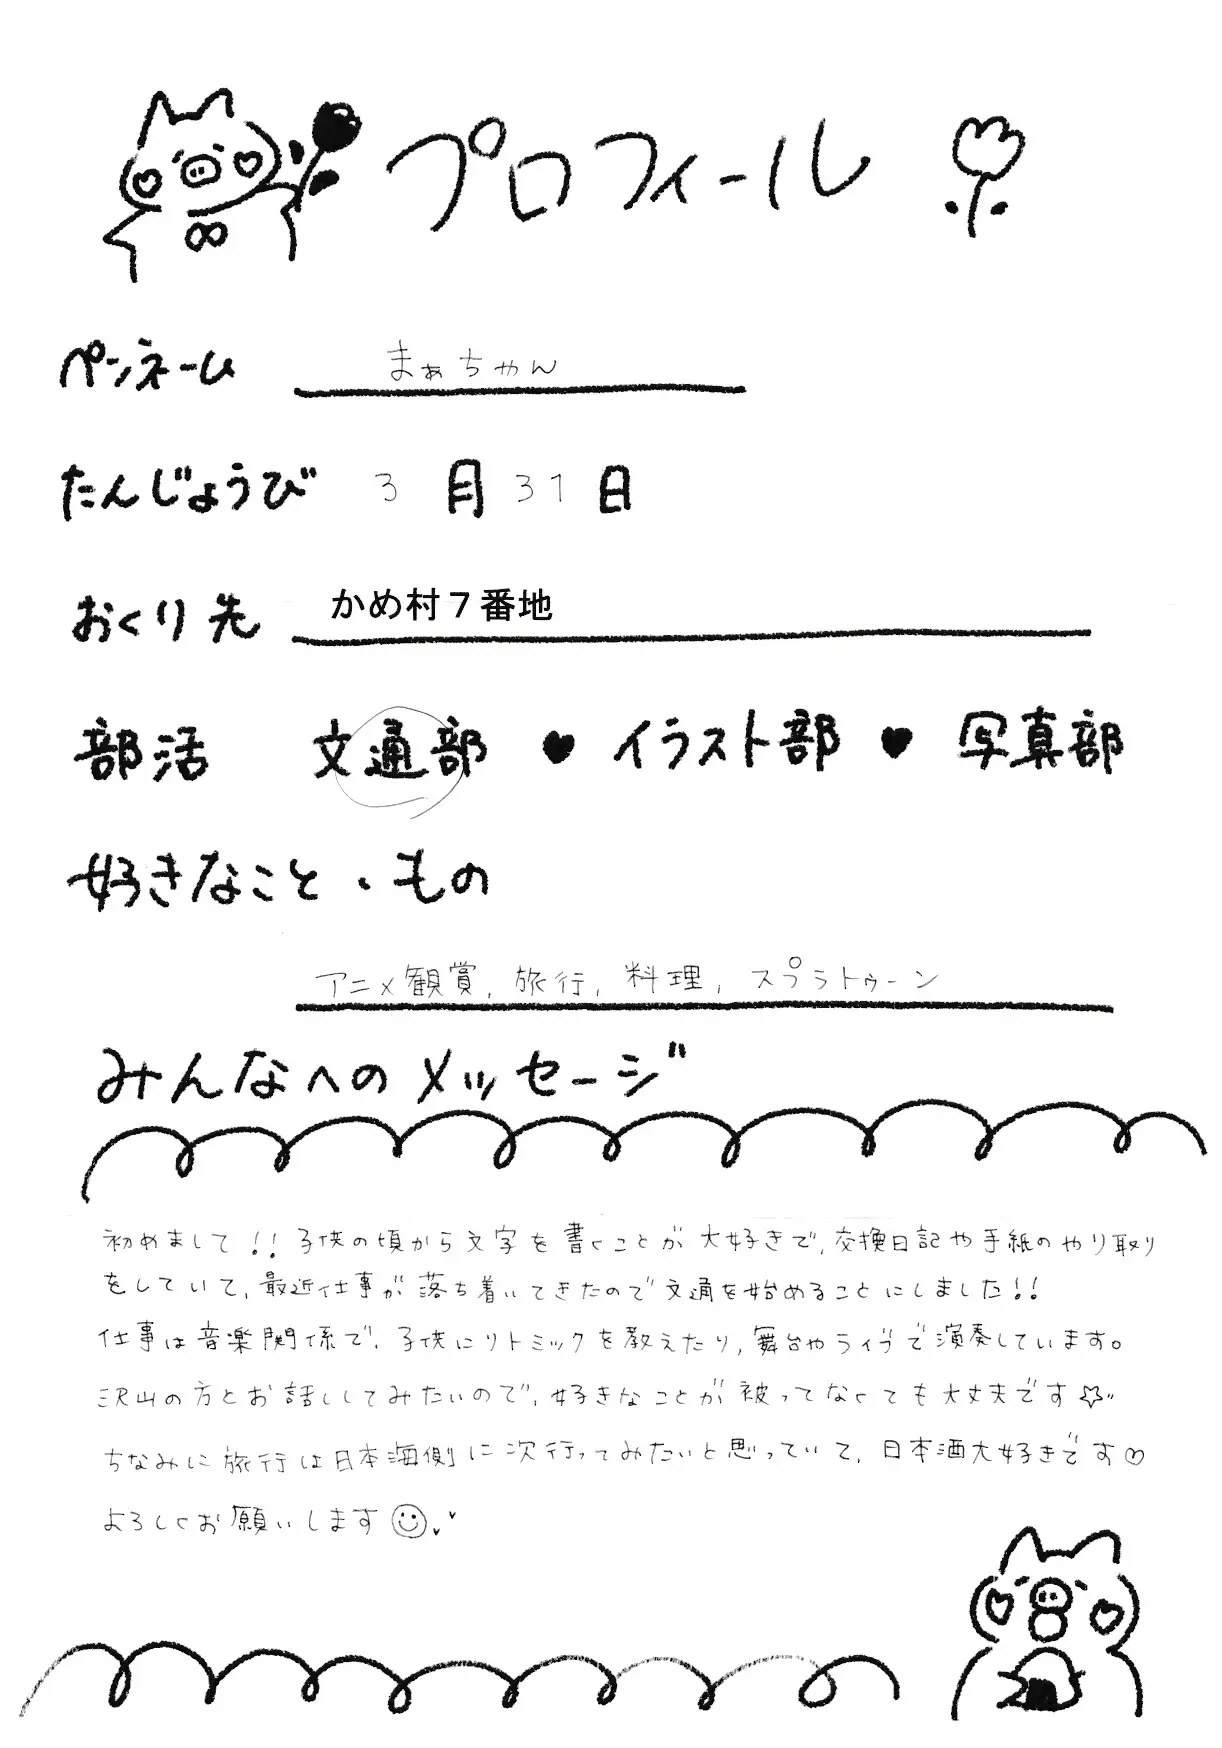 プロフィール
ペンネーム まぁちゃん
たんじょうび 3月31日
おくり先 かめ村７番地
部活 文通部 ♥ イラスト部 ♥ 写真部
好きなこと・もの
アニメ観賞, 旅行, 料理, スプラトゥーン
みんなへのメッセージ
初めまして!! 子供の頃から文字を書くことが大好きで, 交換日記や手紙のやり取り
をしていて, 最近仕事が落ち着いてきたので文通を始めることにしました!!
仕事は音楽関係で, 子供にリトミックを教えたり, 舞台やライブで演奏しています。
沢山の方とお話ししてみたいので, 好きなことが被ってなくても大丈夫です☆
ちなみに旅行は日本海側に次行ってみたいと思っていて, 日本酒大好きです♡
よろしくお願いします